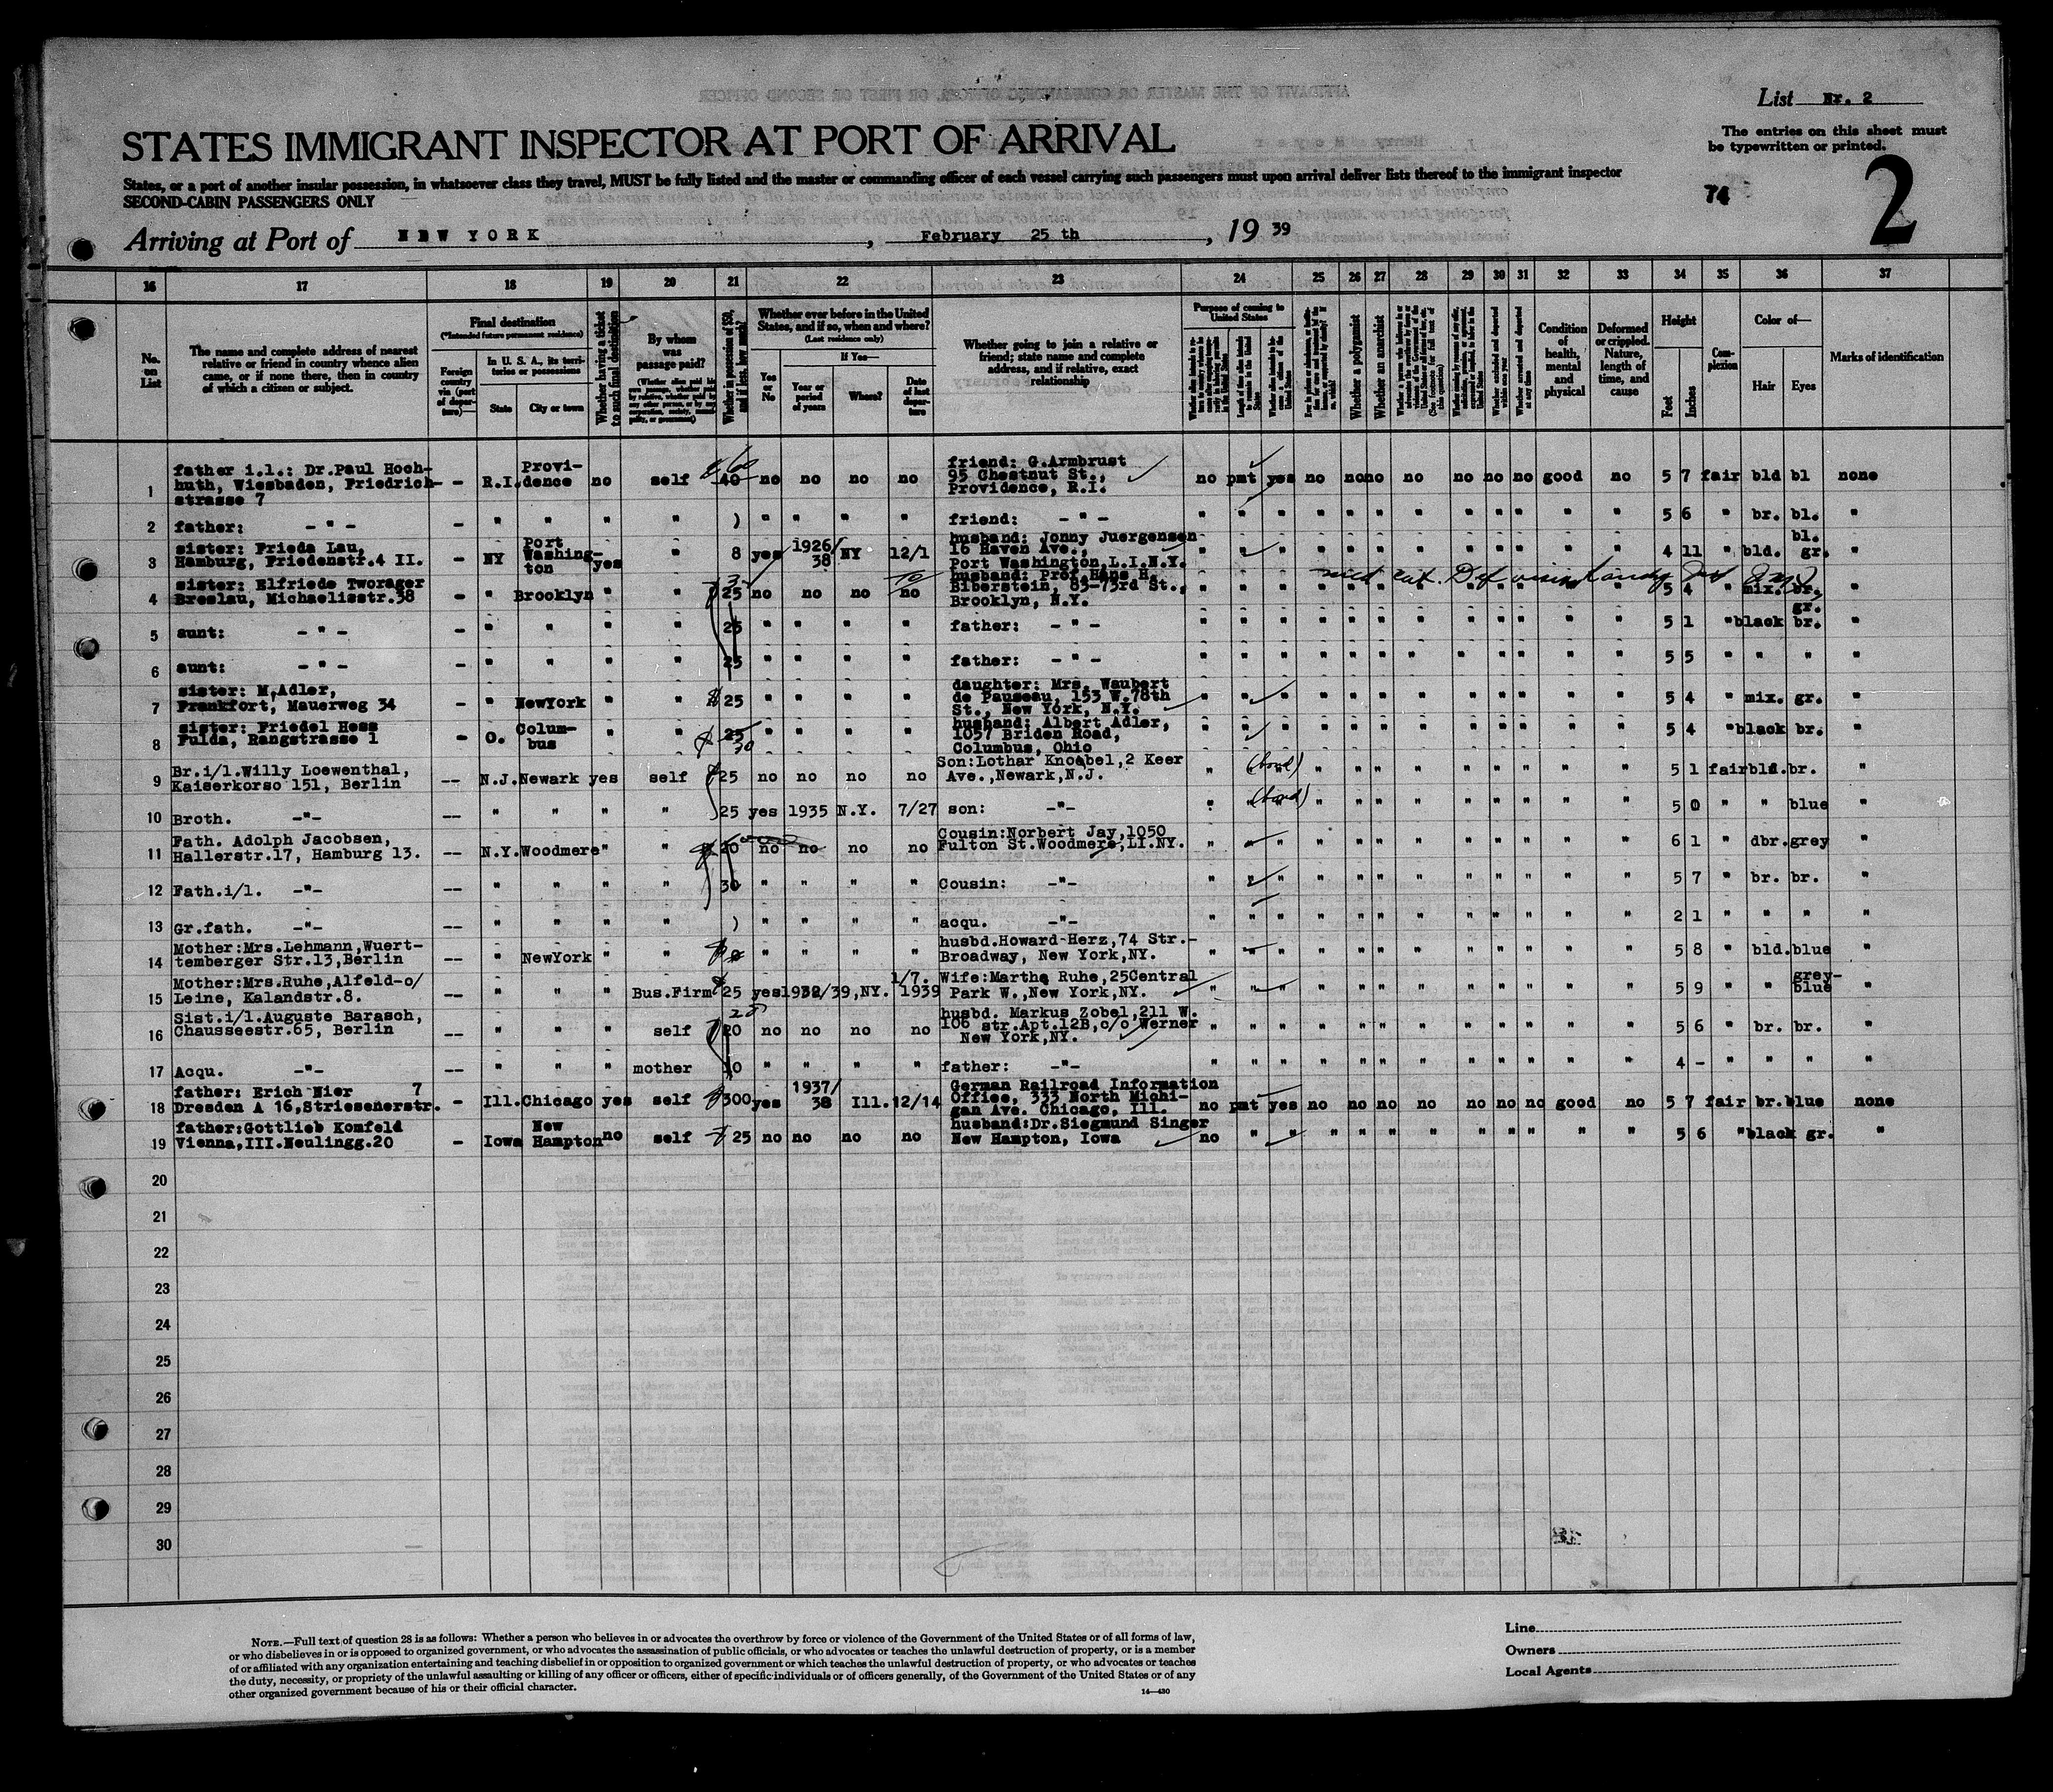 List Nr. 2
STATES IMMIGRANT INSPECTOR AT PORT OF ARRIVAL
The entries on this sheet must
be typewritten or printed.
States, or a port of another insular possession, in whatsoever class they travel, MUST be fully listed and the master or commanding officer of each vessel carrying such passengers must upon arrival deliver lists thereof to the immigrant inspector
SECOND-CABIN PASSENGERS ONLY
74
2
Arriving at Port of NEW YORK, February 25 th, 19 39
16 17 18 19 20 21 22 23 24 25 26 27 28 29 30 31 32 33 34 35 36 37
No. on List
The name and complete address of nearest relative or friend in country whence alien came, or if none there, then in country of which a citizen or subject.
Final destination
(*Intended future permanent residence)
Foreign country via (port of departure)—
In U. S. A., its territories or possessions
State
City or town
Whether having a ticket to such final destination
By whom was passage paid?
Whether in possession of $50, and if less, how much?
Whether ever before in the United States, and if so, when and where?
(Last residence only)
Yes or No
If Yes—
Year or period of years
Where?
Date of last departure
Whether going to join a relative or friend; state name and complete address, and if relative, exact relationship
Purpose of coming to United States
Whether a polygamist
Whether an anarchist
Condition of health, mental and physical
Deformed or crippled. Nature, length of time, and cause
Height
Feet
Inches
Complexion
Color of—
Hair
Eyes
Marks of identification
1 father i.l.: Dr.Paul Hochhuth, Wiesbaden, Friedrichstrasse 7 - R.I. Providence no self 40 60 no no no no friend: G.Armbrust 95 Chestnut St., Providence, R.I. no pmt yes no no no no no no no good no 5 7 fair bld bl none
2 father: - " - - " " " " ) " " " " friend: - " - " " " " " " " " " " " " 5 6 " br. bl. "
3 sister: Frieda Lau, Hamburg, Friedenstr.4 II. - NY Port Washington yes " 8 yes 1926/38 NY 12/1 husband: Jonny Juergensen 16 Haven Ave., Port Washington,L.I.N.Y. " " " " " " " " " " " " 4 11 " bld. bl. gr. "
4 sister: Elfriede Tworager Breslau, Michaelisstr.38 - " Brooklyn " " 25 no no no no husband: Prof.Hans H. Elberstein, 83-73rd St., Brooklyn, N.Y. 5 4 " mix. br. gr. "
5 aunt: - " - - " " " " 25 " " " " father: - " - " " " " " " " " " " " " 5 1 " black br. "
6 aunt: - " - - " " " " 25 " " " " father: - " - " " " " " " " " " " " " 5 5 " " " "
7 sister: M.Adler, Frankfort, Mauerweg 34 - " NewYork " " $ 25 " " " " daughter: Mrs. Waubert de Pauseau, 153 W.78th St., New York, N.Y. " " " " " " " " " " " " 5 4 " mix. gr. "
8 sister: Friedel Hess Fulda, Rangstrasse 1 - O. Columbus " " 25 30 " " " " husband: Albert Adler, 1057 Briden Road, Columbus, Ohio " " " " " " " " " " " " 5 4 " black br. "
9 Br.i/l.Willy Loewenthal, Kaiserkorso 151, Berlin -- N.J. Newark yes self 25 no no no no Son:Lothar Knoebel,2 Keer Ave.,Newark,N.J. " (bond) " " " " " " " " " " 5 1 fair bld. br. "
10 Broth. -"- -- " " " " 25 yes 1935 N.Y. 7/27 son: -"- " (bond) " " " " " " " " " " 5 0 " " blue "
11 Fath. Adolph Jacobsen, Hallerstr.17, Hamburg 13. -- N.Y. Woodmere " " 20 no no no no Cousin:Norbert Jay,1050 Fulton St.Woodmere,LI.NY. " " " " " " " " " " " " 6 1 " dbr. grey "
12 Fath.i/l. -"- -- " " " " 30 " " " " Cousin: -"- " " " " " " " " " " " " 5 7 " br. br. "
13 Gr.fath. -"- -- " " " " ) " " " " acqu. -"- " " " " " " " " " " " " 2 1 " " " "
14 Mother:Mrs.Lehmann,Wuerttemberger Str.13,Berlin -- " NewYork " " 8 " " " " husbd.Howard Herz,74 Str.-Broadway, New York,NY. " " " " " " " " " " " " 5 8 " bld. blue "
15 Mother:Mrs.Ruhe,Alfeld-o/Leine, Kalandstr.8. -- " " " Bus.Firm 25 yes 1938/39,NY. 1/7. 1939 Wife:Martha Ruhe,25Central Park W.,New York,NY. " " " " " " " " " " " " 5 9 " " grey-blue "
16 Sist.i/l.Auguste Barasch, Chausseestr.65, Berlin -- " " " self 20 no no no no husbd. Markus Zobel,211 W. 106 str.Apt.12B,c/o Werner New York,NY. " " " " " " " " " " " " 5 6 " br. br. "
17 Acqu. -"- -- " " " mother 10 " " " " father: -"- " " " " " " " " " " " " 4 - " " " "
18 father: Erich Nier Dresden A 16,Striesenerstr. 7 - Ill. Chicago yes self $ 300 yes 1937/38 Ill. 12/14 German Railroad Information Office, 333 North Michigan Ave. Chicago, Ill. no pmt yes no no no no no no no good no 5 7 fair br. blue none
19 father:Gottlieb Komfeld Vienna,III.Neulingg.20 - Iowa New Hampton no self 25 no no no no husband:Dr.Siegmund Singer New Hampton, Iowa no " " " " " " " " " " " 5 6 " black gr. "
20
21
22
23
24
25
26
27
28
29
30
NOTE.—Full text of question 28 is as follows: Whether a person who believes in or advocates the overthrow by force or violence of the Government of the United States or of all forms of law,
or who disbelieves in or is opposed to organized government, or who advocates the assassination of public officials, or who advocates or teaches the unlawful destruction of property, or is a member
of or affiliated with any organization entertaining and teaching disbelief in or opposition to organized government or which teaches the unlawful destruction of property, or who advocates or teaches
the duty, necessity, or propriety of the unlawful assaulting or killing of any officer or officers, either of specific individuals or of officers generally, of the Government of the United States or of any
other organized government because of his or their official character.
14—430
Line
Owners
Local Agents